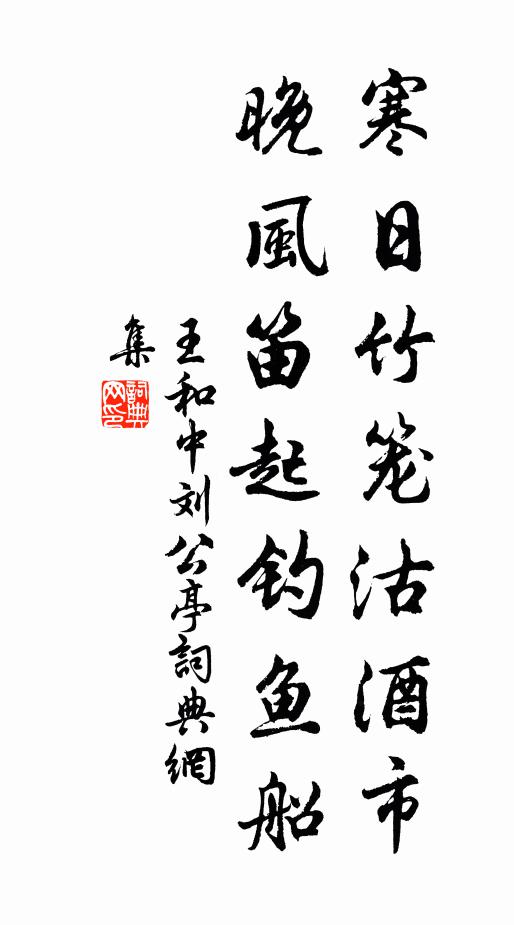 寒日竹笼沽酒市
晚風笛起钓鱼船
王和中刘公亭詞典網
集
詞典网印